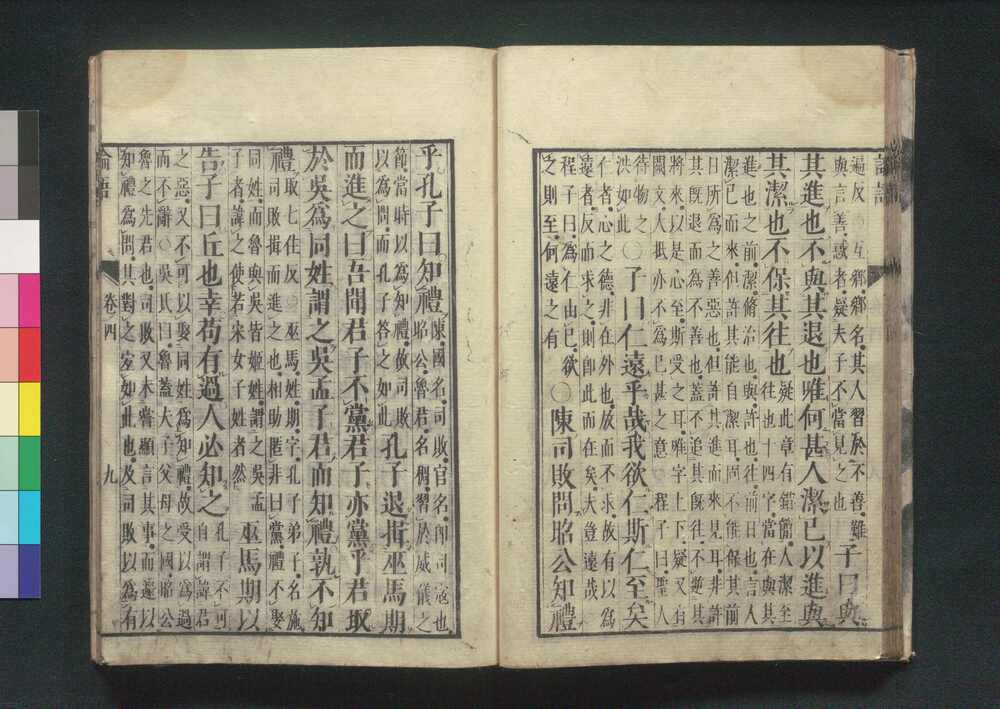 論語
遍反〇互鄉鄉名其人習於不善難
與言善惑者疑夫子不當見之也
子曰與
其進也不與其退也唯何甚人潔己以進與
其潔也不保其往也
疑此章有錯簡人潔至
往也十四字當在與其
進也之前潔脩治也與許也往前日也言人
潔己而來但許其能自潔耳固不能保其前
日所為之善惡也但許其進而來見耳非許
其既退而為不善也蓋不追其既往不逆其
將來以是心至斯受之耳唯字上下疑又有
闕文大抵亦不為已甚之意〇程子曰聖人
待物之
洪如此
〇子曰仁遠乎哉我欲仁斯仁至矣
仁者心之德非在外也放而不求故有以為
遠者反而求之則即此而在矣夫豈遠哉
程子曰為仁由己欲
之則至何遠之有
〇陳司敗問昭公知禮
乎孔子曰知禮
陳國名司敗官名即司寇也
昭公魯君名稠習於威儀之
節當時以為知禮故司敗
以為問而孔子答之如此
孔子退揖巫馬期
而進之曰吾聞君子不黨君子亦黨乎君取
於吳為同姓謂之吳孟子君而知禮孰不知
禮
取七住反〇巫馬姓期字孔子弟子名施
司敗揖而進之也相助匿非曰黨禮不娶
同姓而魯與吳皆姬姓謂之吳孟
子者諱之使若宋女子姓者然
巫馬期以
告子曰丘也幸苟有過人必知之
孔子不可
自謂諱君
之惡又不可以娶同姓為知禮故受以為過
而不辭〇吳氏曰魯蓋夫子父母之國昭公
魯之先君也司敗又未嘗顯言其事而遽以
知禮為問其對之宜如此也及司敗以為有
論語
卷四
九